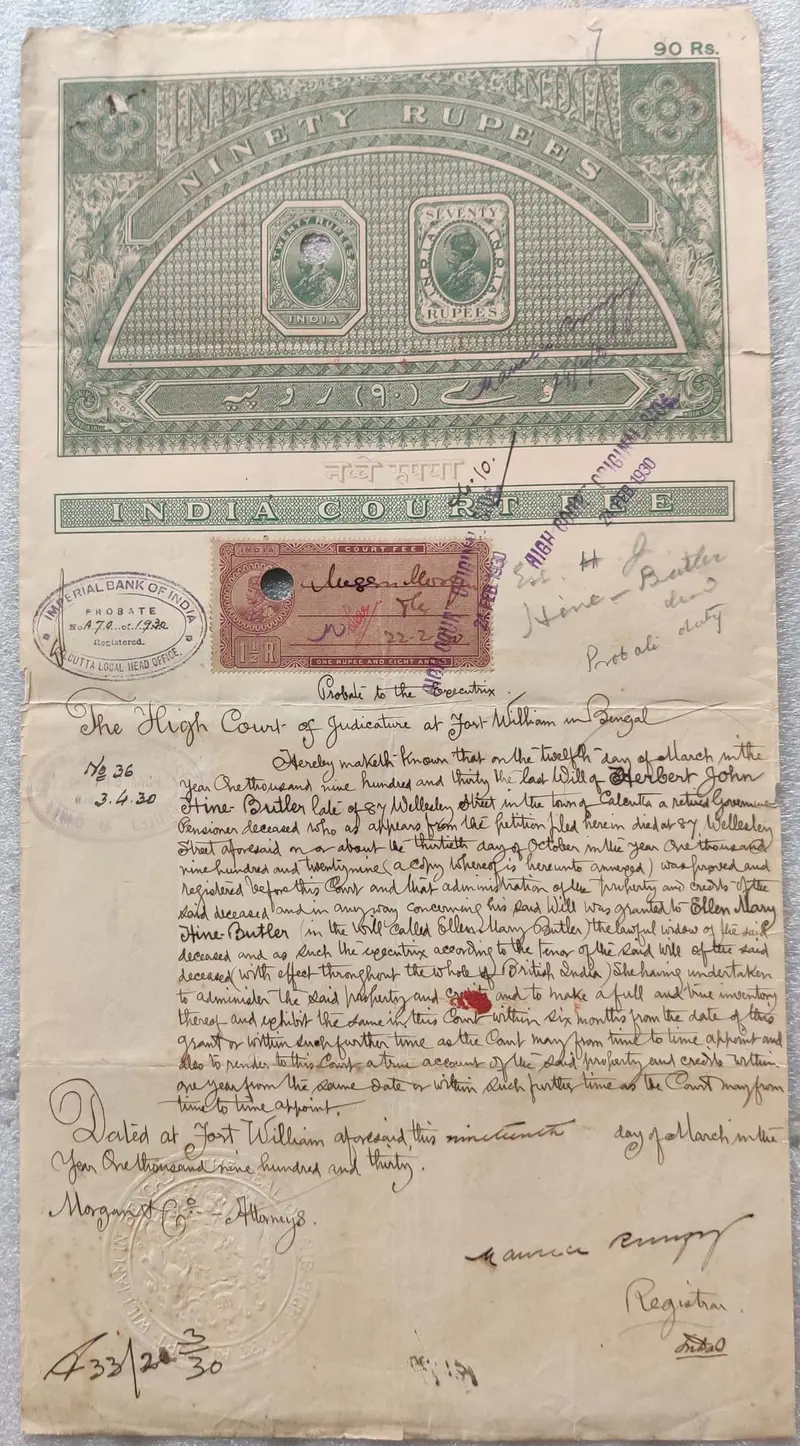 90 Rs.
INDIA INDIA
NINETY RUPEES
TWENTY RUPEES
INDIA
SEVENTY
INDIA INDIA
RUPEES
نوے (۹۰) روپیہ
INDIA COURT FEE
HIGH COURT ORIGINAL SIDE
24 FEB 1930
INDIA COURT FEE
22-2-30
1½ R
ONE RUPEE AND EIGHT ANNAS
HIGH COURT ORIGINAL SIDE
FEB 1930
IMPERIAL BANK OF INDIA
PROBATE
No A.70 of 1930
Registered.
CALCUTTA LOCAL HEAD OFFICE.
Est. H J
Hine-Butler
decd
Probate duty
Probate to the Executrix.
The High Court of Judicature at Fort William in Bengal
No 36
" 3.4.30
Hereby maketh known that on the twelfth day of March in the
year One thousand nine hundred and thirty the last Will of Herbert John
Hine-Butler late of 87 Wellesley Street in the town of Calcutta a retired Government
Pensioner deceased who as appears from the petition filed herein died at 87 Wellesley
Street aforesaid on or about the thirtieth day of October in the year One thousand
nine hundred and twentynine (a copy whereof is hereunto annexed) was proved and
registered before this Court and that administration of the property and credits of the
said deceased and in any way concerning his said Will was granted to Ellen Mary
Hine-Butler (in the Will called Ellen Mary Butler) the lawful widow of the said
deceased and as such the executrix according to the tenor of the said will of the said
deceased (with effect throughout the whole of British India) She having undertaken
to administer the said property and credits and to make a full and true inventory
thereof and exhibit the same in this Court within six months from the date of this
grant or within such further time as the Court may from time to time appoint and
also to render to this Court a true account of the said property and credits within
one year from the same date or within such further time as the Court may from
time to time appoint.
Dated at Fort William aforesaid, this nineteenth day of March in the
Year One thousand nine hundred and thirty.
Morgan & Co. - Attorneys.
Registrar.
33/20 3/30